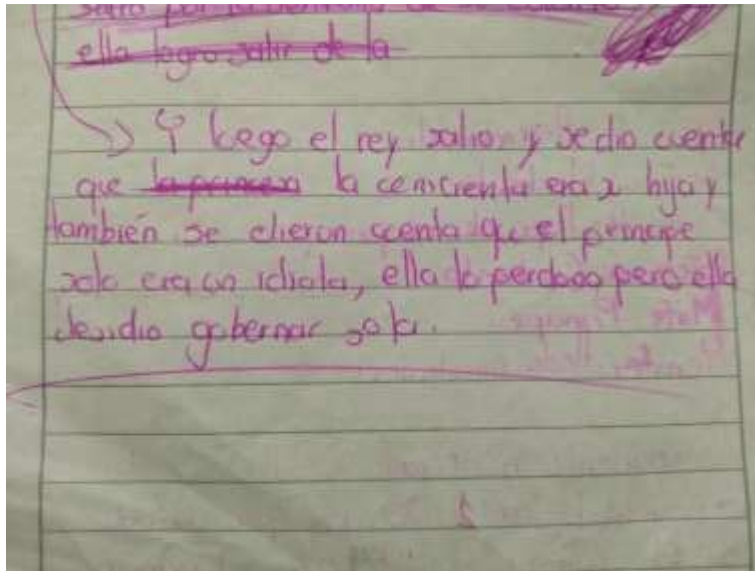 ella logro salir de la
Y luego el rey salio y se dio cuenta
que la princesa la cenicienta era su hija y
también se dieron scenta que el principe
solo era un idiota, ella lo perdono pero ella
desidio gobernar sola.